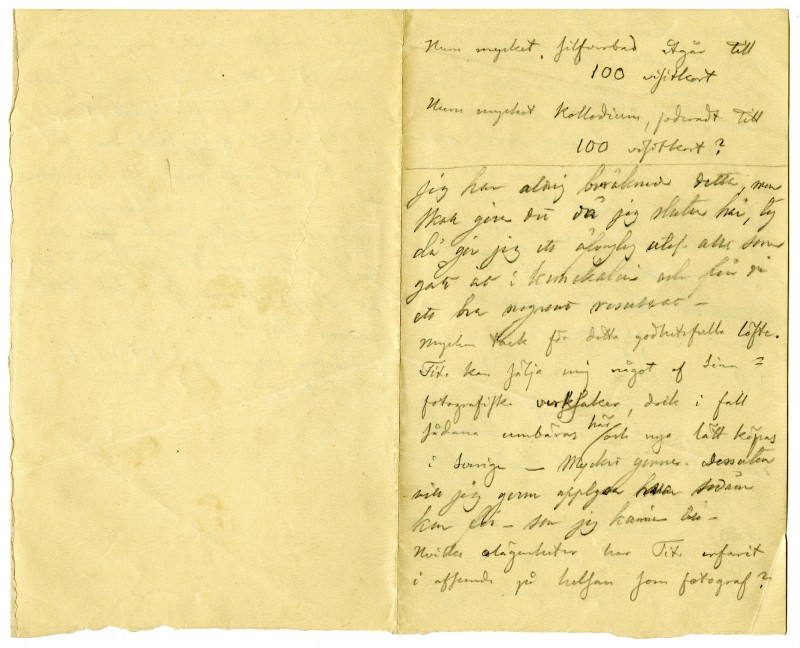 Huru mycket silfverbad åtgår till
100 visitkort
Huru mycket Kollodium, joderadt till
100 visitkort?
jeg har aldrig beräknad detta, men
skal göra det då jeg sluter här, ty
då gör jeg ett af alt som
gått åt i kemikalier och får då
ett bra resultat –
Mycken tack för detta godhetsfulla löfte.
Tit. kan sälja mig något af sina
fotografiska verksaker, dock i fall
sådana umbäras här och nya lätt köpas
i Sverige – Mycket gerna. Dessutom
vil jeg gerna sådan
kan fås – som jeg känner till –
Hvilka olägenheter har Tit. erfarit
i afseende på helsan som fotograf?